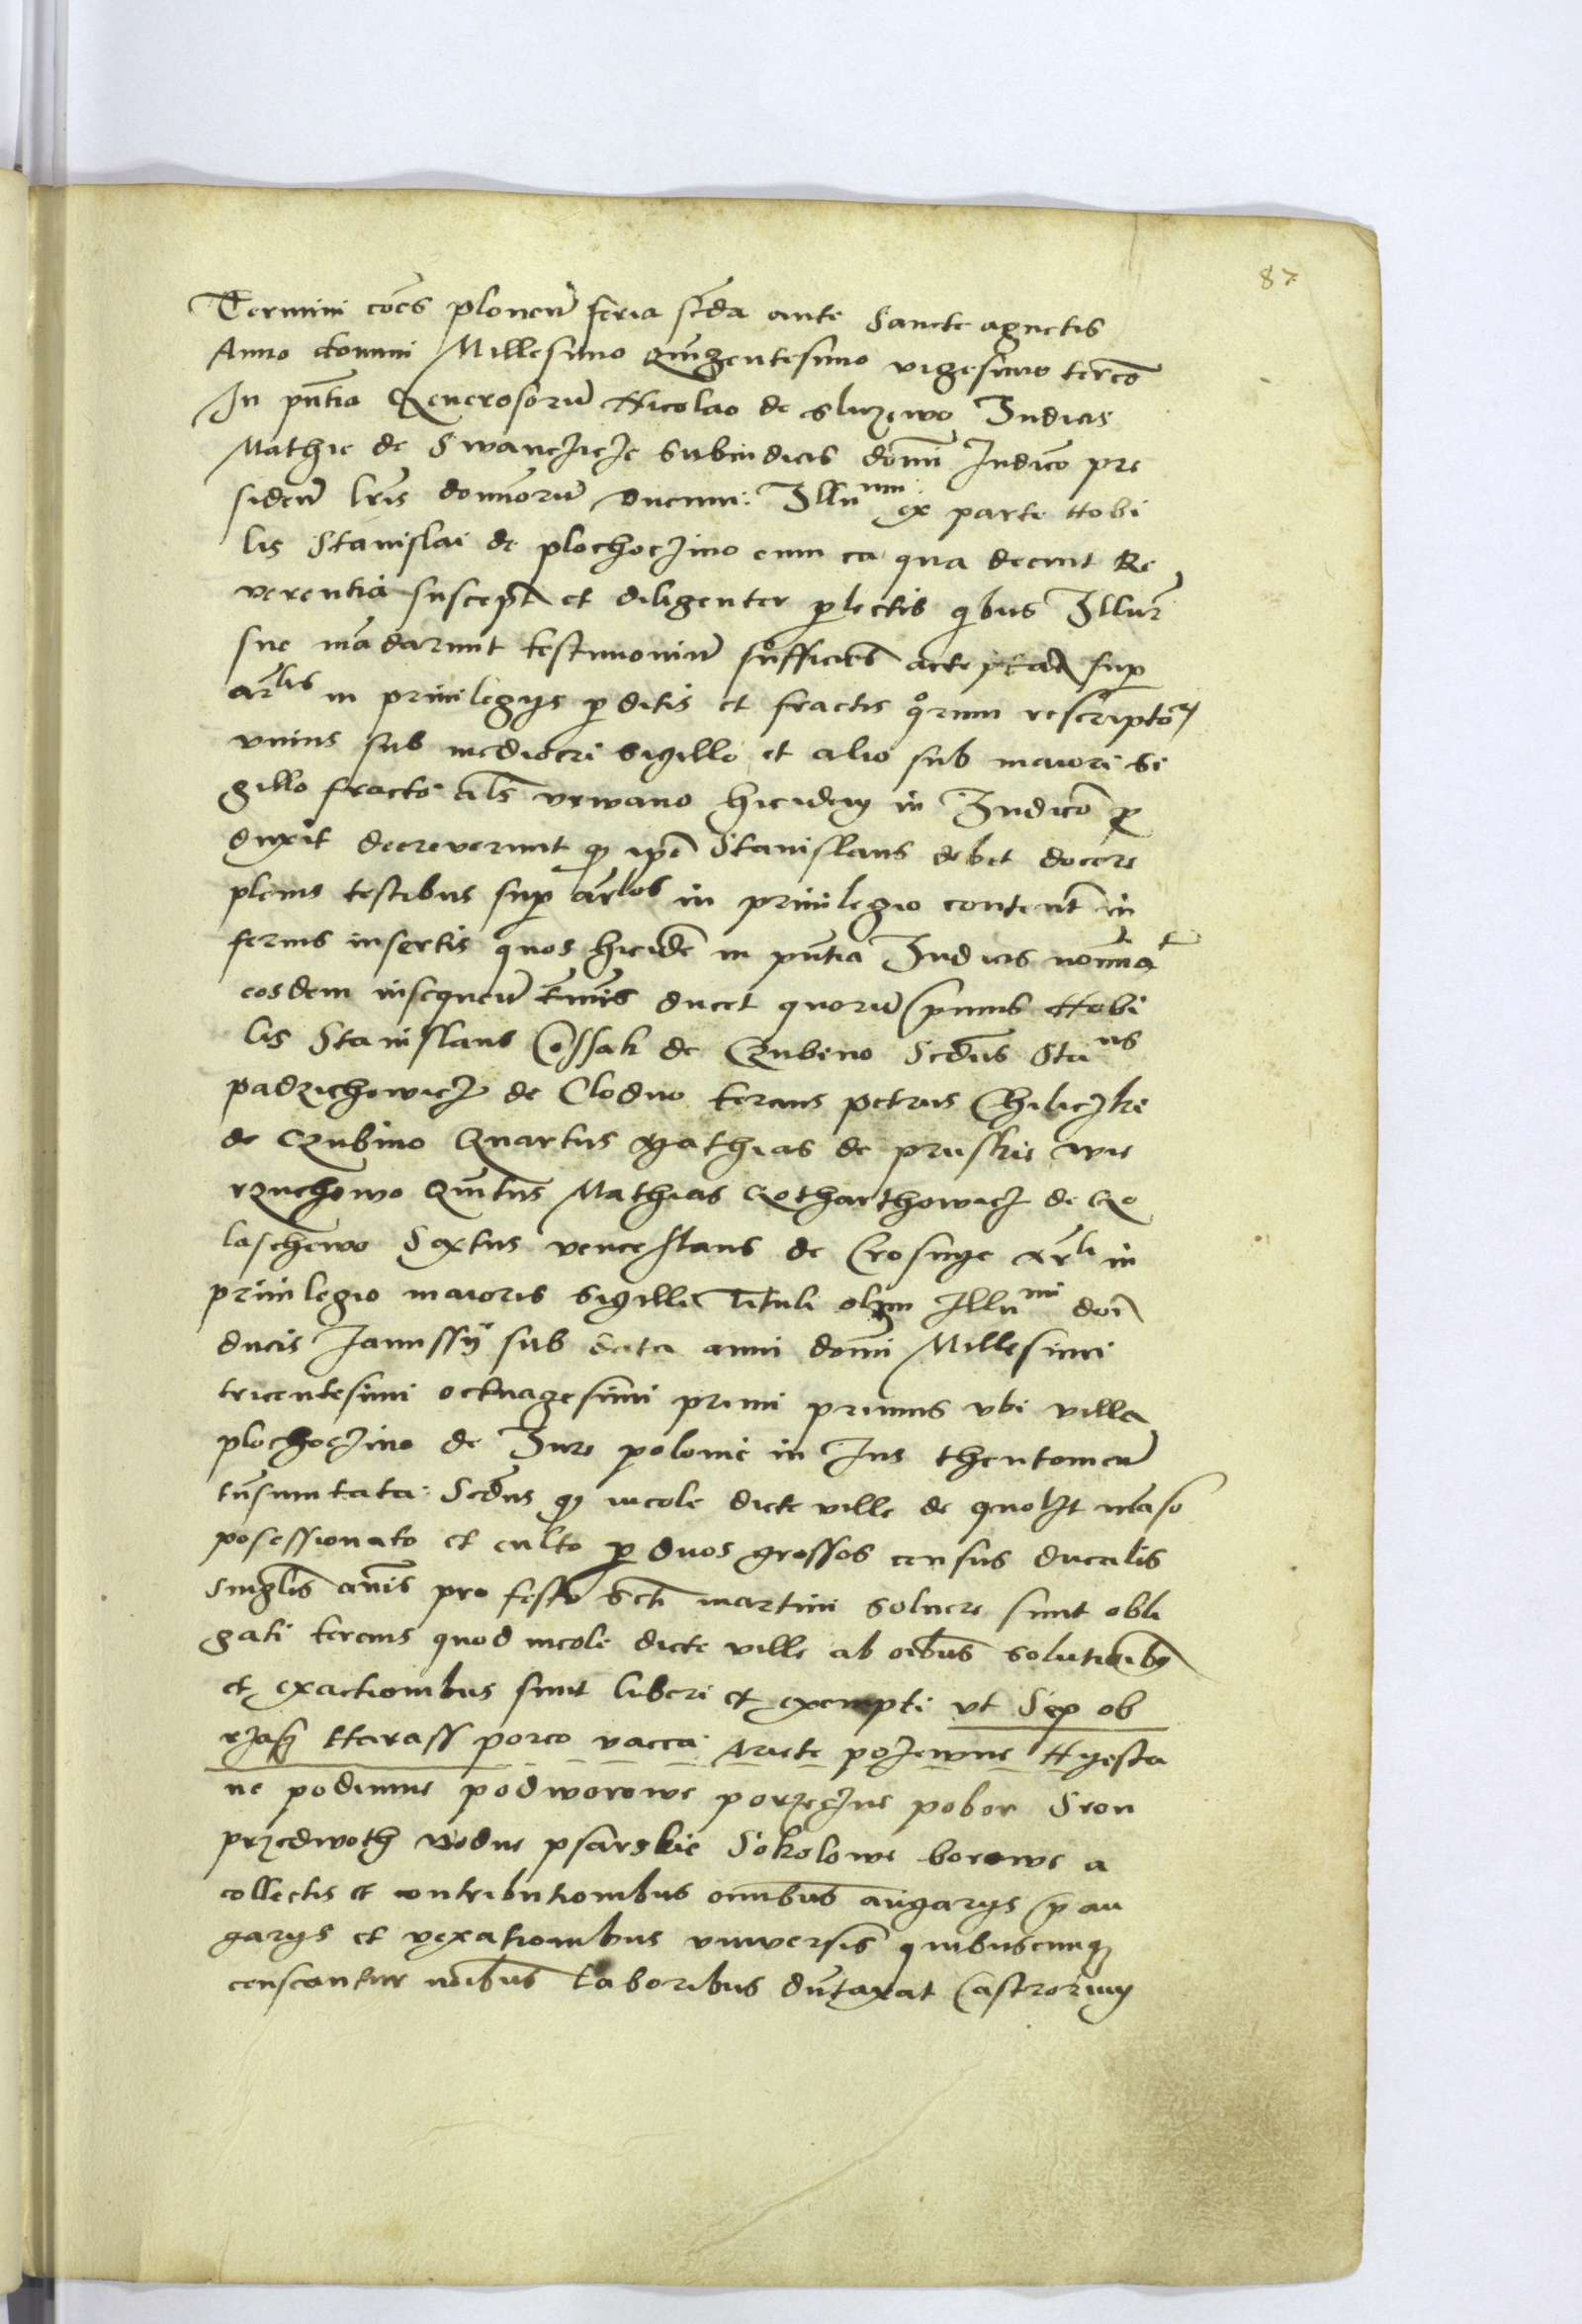 87
Termini coes̄ plonen̄ feria scda ante Sancte agnetis
Anno domini Millesimo Quĩgentesimo vigesimo tercō
In pn̄tia Generosorū Nicolao de Sluzewo Iudicis
Mathie de Swanczicze Subiudicis domĩ Iudicō pre
siden̄ lr̄is domĩorū ducum: Illu^mm: ex parte Nobi
lis Stanislai de plochoczino cum ea qua decuit Re
verentia suscept̄ et diligenter p̄lectis qͥbus Illur̄
sue mādarunt testimoniū sufficiēs acceptari sup̄
ar^lis in priuilegys p̄ditis et fractis qͦrum rescriptoꝝ
vnius sub mediocri sigillo et alio sub maiori si
gillo fracto al̄s vrwano hicidem in Iudicō ꝓ
duxit decreverunt qꝫ ip̄e Stanislaus debet docere
plenis testibus sup̄ ar^los in priuilegio content̄ in
ferius insertis quos hicidē in pn̄tia Iudicis nomĩa^t
eosdem insequen̄ tm̄is ducet quorū pͥmus Nobi
lis Stanislaus Cossak de Gubino Scdūs Sta^us
padzichowicz de Clodno tercius petrus Chiliczki
de Gubino Quartus Mathias de pruskie wie
rzuchowo Quĩtus Mathias Gotharthowicz de Go
laschewo Sextus venceslaus de Crosnye Ar^li in
priuilegio maioris sigilli Tituli olym Illu^mi doī
ducis Ianussÿ sub data anni domĩ Millesimi
tricentesimi octuagesimi primi primus vbi villa
plochoczino de Iure polonie in Ius theutonicū
tn̄smutata: Scdūs qꝫ incole dicte ville de quolꝫt māso
posessionato et culto ꝑ duos grossos census ducalis
singl̄is an̄is pro festo Scti martini soluere sunt obli
gati tercius quod incole dicte ville ab oībus solutiōibꝫ
et exactionibus sunt liberi et exempti vt Sep ob
rzasz Narass porco vacca Ariete pozewne Nyesta
ne podimne podworowe porzeczne pobor Stron
przedwoth wodne psarskie Sokolowe borowe a
collectis et contributionibus omĩbus angarys p̄an
garys et vexationibus vniversis quibuscumqꝫ
censeantur nōibus laboribus dūtaxat Castrorum